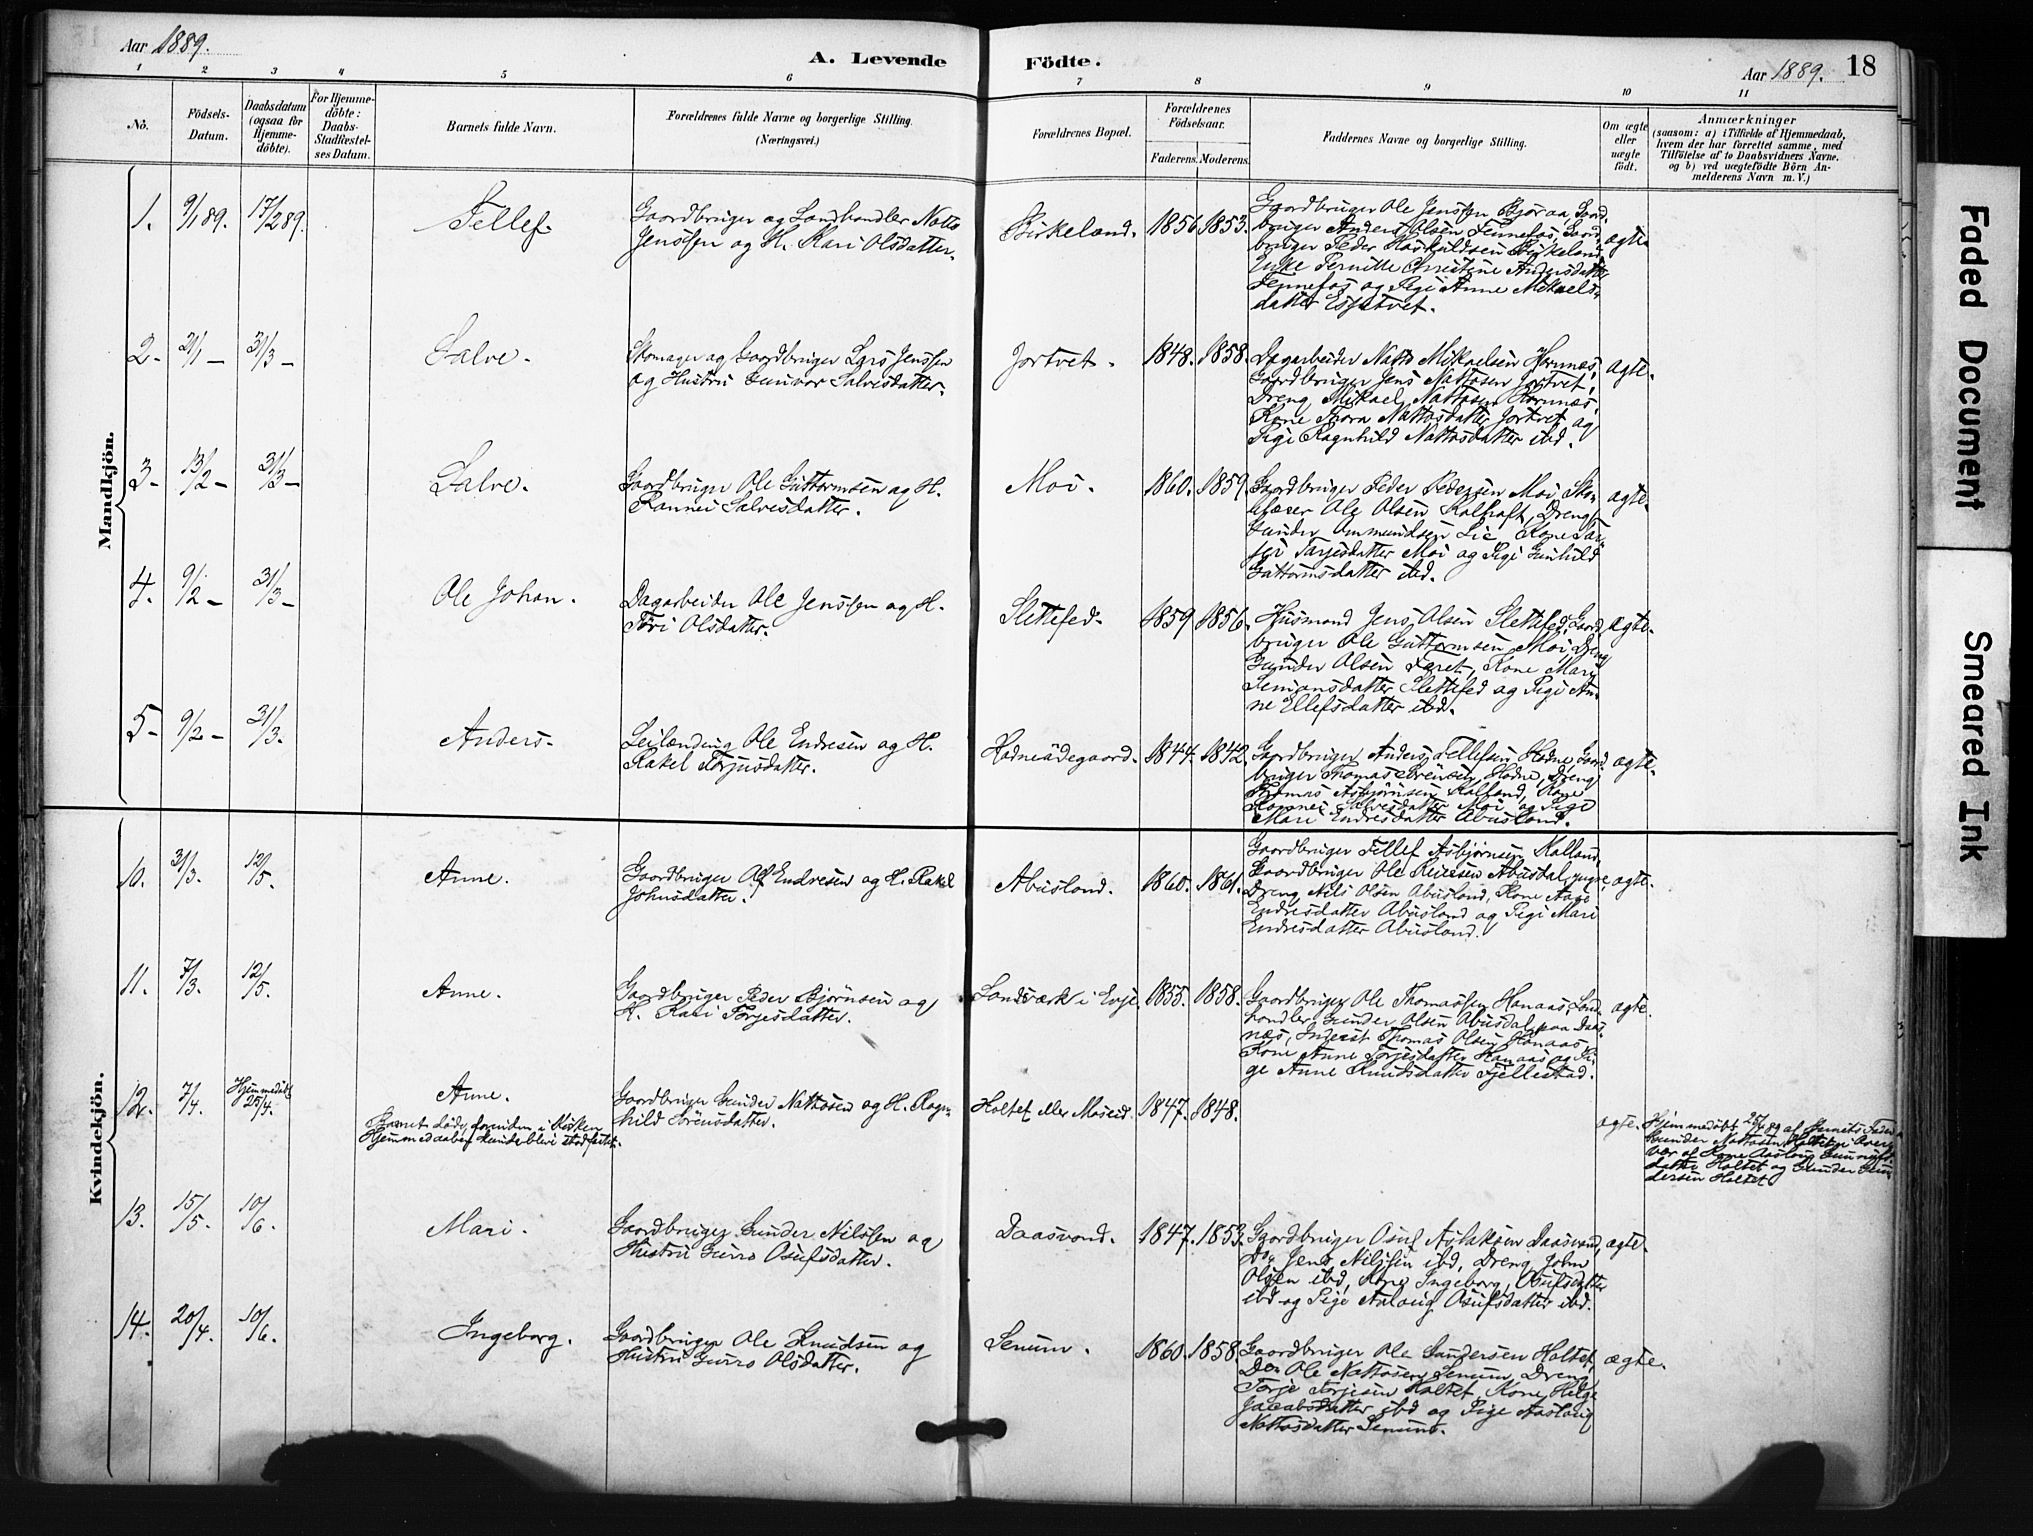 Aar 1889.
A. Levende Födte.
Aar 1889. 18
1 2 3 4 5 6 7 8 9 10 11
No.
Födsels-
Datum.
Daabsdatum
(ogsaa for
Hjemme-
döbte).
For Hjemme-
döbte:
Daabs-
Stadfæstel-
ses Datum.
Barnets fulde Navn.
Forældrenes fulde Navne og borgerlige Stilling.
(Næringsvei.)
Forældrenes Bopæl.
Forældrenes
Födselsaar.
Faderens. Moderens.
Faddernes Navne og borgerlige Stilling.
Om ægte
eller
uægte
födt.
Anmærkninger
(saasom: a) i Tilfælde af Hjemmedaab,
hvem der har forrettet samme, med
Tilföielse af to Daabsvidners Navne.
og b) ved uegtefödte Börn An-
melderens Navn m. V.)
Mandkjön.
1. 9/1 89. 17/2 89. Tellef.
Gaardbruger og Landhandler Natto
Jenssen og H. Kari Olsdatter.
Birkeland. 1856 1853.
Gaardbruger Ole Jenssen Bjøraa, Gaard-
bruger Anders Olsen Fennefos, Gaard-
bruger Peder Hoskuldsen Birkeland,
Enke Pernille Christine Andersdatter
Fennefos og Pige Anne Mikaels-
datter Espetvet.
ægte.
2. 21/1 - 31/3 - Salve.
Skomager og Gaardbruger Lars Jenssen
og Hustru Gunvor Salvesdatter.
Jortvet. 1848. 1858.
Dagarbeider Natto Mikaelsen Hornnæs,
Gaardbruger Jens Nattosen Jortvet,
Dreng Mikael Nattosen Hornnæs,
Kone Thora Nattosdatter Jortvet og
Pige Ragnhild Nattosdatter ibd.
ægte.
3. 13/2 - 31/3 - Salve.
Gaardbruger Ole Guttormsen og H.
Rannei Salvesdatter.
Moi. 1860. 1859.
Gaardbruger Peder Pedersen Moi, Sko-
Ole Olsen Kalhaft, Dreng
Gunder Ommundsen Lie, Kone Tor-
Torjesdatter Moi og Pige Gunhild
Guttormsdatter ibd.
ægte.
4. 9/2 - 31/3 - Ole Johan.
Dagarbeider Ole Jenssen og H.
Tori Olsdatter.
Slettefed. 1859 1856.
Husmand Jens Olsen Slettefed, Gaard-
bruger Ole Guttormsen Moi, Dreng
Gunder Olsen Faret, Kone Mari
Simonsdatter Slettefed og Pige An-
ne Ellefsdatter ibd.
ægte.
5. 9/2 - 31/3. Anders.
Leilænding Ole Endresen og H.
Rakel Torjusdatter.
Hodneødegaard. 1844. 1842.
Gaardbruger Anders Tellefsen Hodne, Gaard-
bruger Thomas Sørensen Hodne, Dreng
Thomas Asbjørnsen Kalland, Kone
Rannei Salvesdatter Moi og Pige
Mari Endresdatter Abusland.
ægte.
Kvindekjön.
10. 31/3. 12/5. Anne.
Gaardbruger Alf Endresen og H. Rakel
Johnsdatter.
Abusland. 1860. 1861.
Gaardbruger Tellef Asbjørnsen Kalland,
Gaardbruger Ole Abusdal,
Dreng Nils Olsen Abusland, Kone Aage
Endresdatter Abusland og Pige Mari
Endresdatter Abusland.
ægte.
11. 7/3. 12/5. Anne.
Gaardbruger Peder Bjørnsen og
H. Kari Torjesdatter.
Landsværk i Evje. 1855. 1858.
Gaardbruger Ole Thomassen Hanaas, Land-
handler Gunder Olsen Abusdal paa Daas-
næs, Inderst Thomas Olsen Hanaas,
Kone Anne Torjesdatter Hanaas og Pi-
ge Anne Knudsdatter Fjellestad.
ægte.
12. 7/4. Hjemmedøbt 25/4. Anne.
Barnet døde, forinden i Kirken
Hjemmedaaben kunde blive stadfæstet.
Gaardbruger Gunder Nattosen og H. Ragn-
hild Sørensdatter.
Holtet eller Moseid. 1847. 1848.
ægte.
Hjemmedøbt 25/4 89 af Barnets Fader
Gunder Nattosen Holtet i Overv-
vær af Kone Aaslaug Gunnulfs-
datter Holtet og Gunder Gun-
dersen Holtet.
13. 15/5. 10/6. Mari.
Gaardbruger Gunder Nilssen og
Hustru Gurro Osufsdatter.
Daasvand. 1847. 1853.
Gaardbruger Osuf Aslaksen Daasvand,
Do. Jens Nilssen ibd, Dreng John
Olsen ibd, Kone Ingeborg Osufsdatter
ibd og Pige Aslaug Osufsdatter ibd.
ægte.
14. 20/4. 10/6. Ingeborg.
Gaardbruger Ole Knudsen og
Hustru Gurro Olsdatter.
Senum. 1860. 1858.
Gaardbruger Ole Gundersen Holtet,
Do. Ole Nattosen Senum, Dreng
Torje Torjesen Holtet, Kone Helge
Jacobsdatter ibd og Pige Aaslaug
Nattosdatter Senum.
ægte.
Faded Document
Smeared Ink